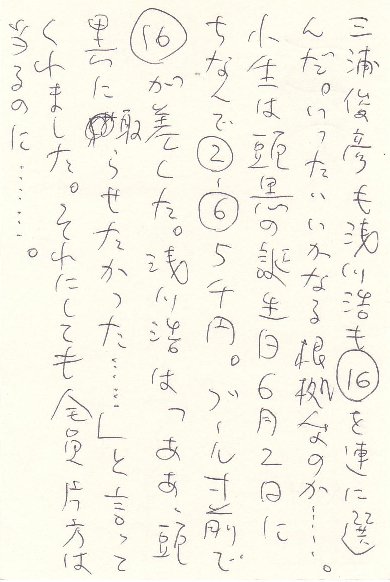 三浦俊彦も浅川浩も⑯を連に選
んだ。いったいいかなる根拠なのか……。
小生は頭黒の誕生日6月2日に
ちなんで②-⑥5千円。ゴール寸前で
⑯が差した。浅川浩は「ああ、頭
黒に取らせたかった……」と言って
くれました。それにしても全員片方は
当るのに……。